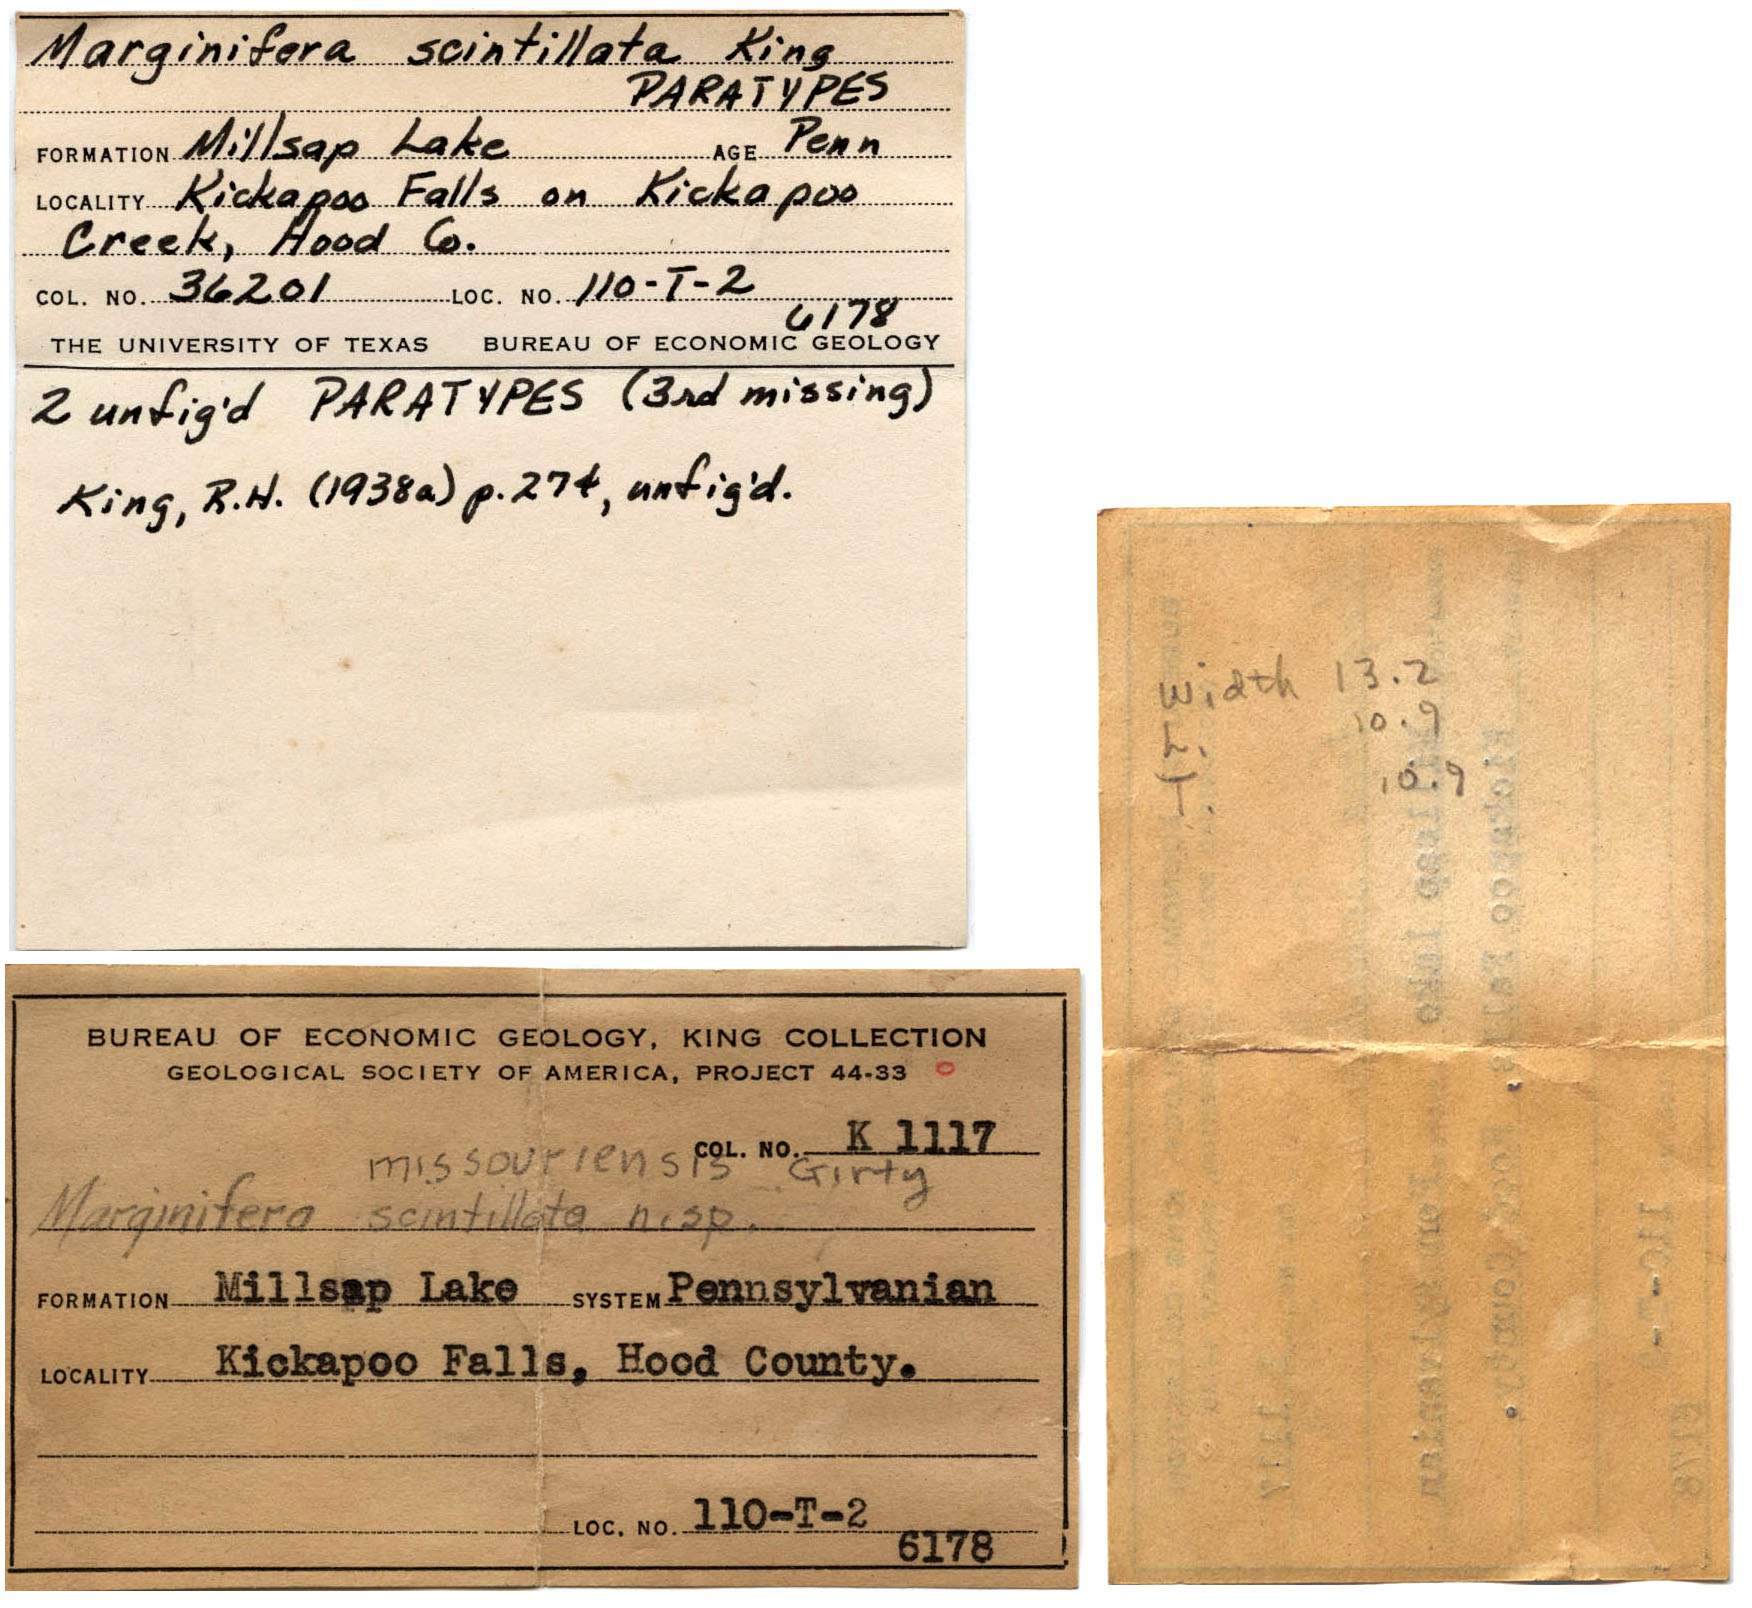 Marginifera scintillata King
PARATYPES
FORMATION Millsap Lake AGE Penn
LOCALITY Kickapoo Falls on Kickapoo
Creek, Hood Co.
COL. NO. 36201 LOC. NO. 110-T-2
6178
THE UNIVERSITY OF TEXAS BUREAU OF ECONOMIC GEOLOGY
2 unfig'd PARATYPES (3rd missing)
King, R.H. (1938a) p. 274, unfig'd.
BUREAU OF ECONOMIC GEOLOGY, KING COLLECTION
GEOLOGICAL SOCIETY OF AMERICA, PROJECT 44-33
COL. NO. K 1117
missouriensis Girty
Marginifera scintillata n.sp.
FORMATION Millsap Lake SYSTEM Pennsylvanian
LOCALITY Kickapoo Falls, Hood County.
LOC. NO. 110-T-2
6178
Width 13.2
L. 10.9
T. 10.9